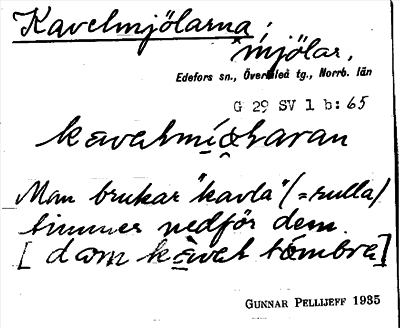 Kavelmjölarna;
*mjölar,
Edefors sn., Överluleå tg., Norrb. län
G 29 SV 1 b: 65
Man brukar "kavla" (=rulla)
timmer nedför dem.
GUNNAR PELLIJEFF 1935